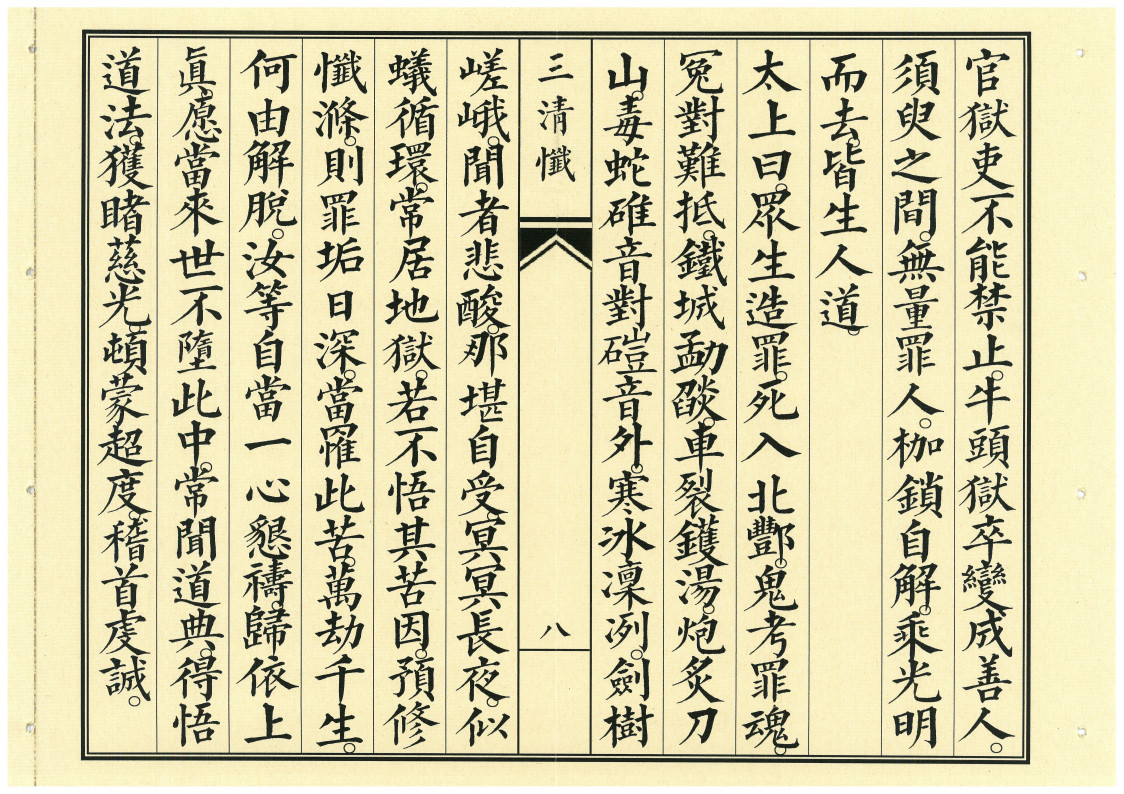 官獄吏不能禁止。牛頭獄卒變成善人。
須臾之間。無量罪人。枷鎖自解。乘光明
而去。皆生人道。
太上曰。眾生造罪。死入北酆。鬼考罪魂。
冤對難抵。鐵城勐燄。車裂鑊湯。炮炙刀
山。毒蛇碓音對磑音外。寒冰凜冽。劍樹
三清懺
八
嵯峨。聞者悲酸。那堪自受。冥冥長夜。似
蟻循環。常居地獄。若不悟其苦因。預修
懺滌。則罪垢日深。當罹此苦。萬劫千生。
何由解脫。汝等自當一心懇禱。歸依上
眞。愿當來世不墮此中。常聞道典。得悟
道法。獲睹慈光。頓蒙超度。稽首虔誠。